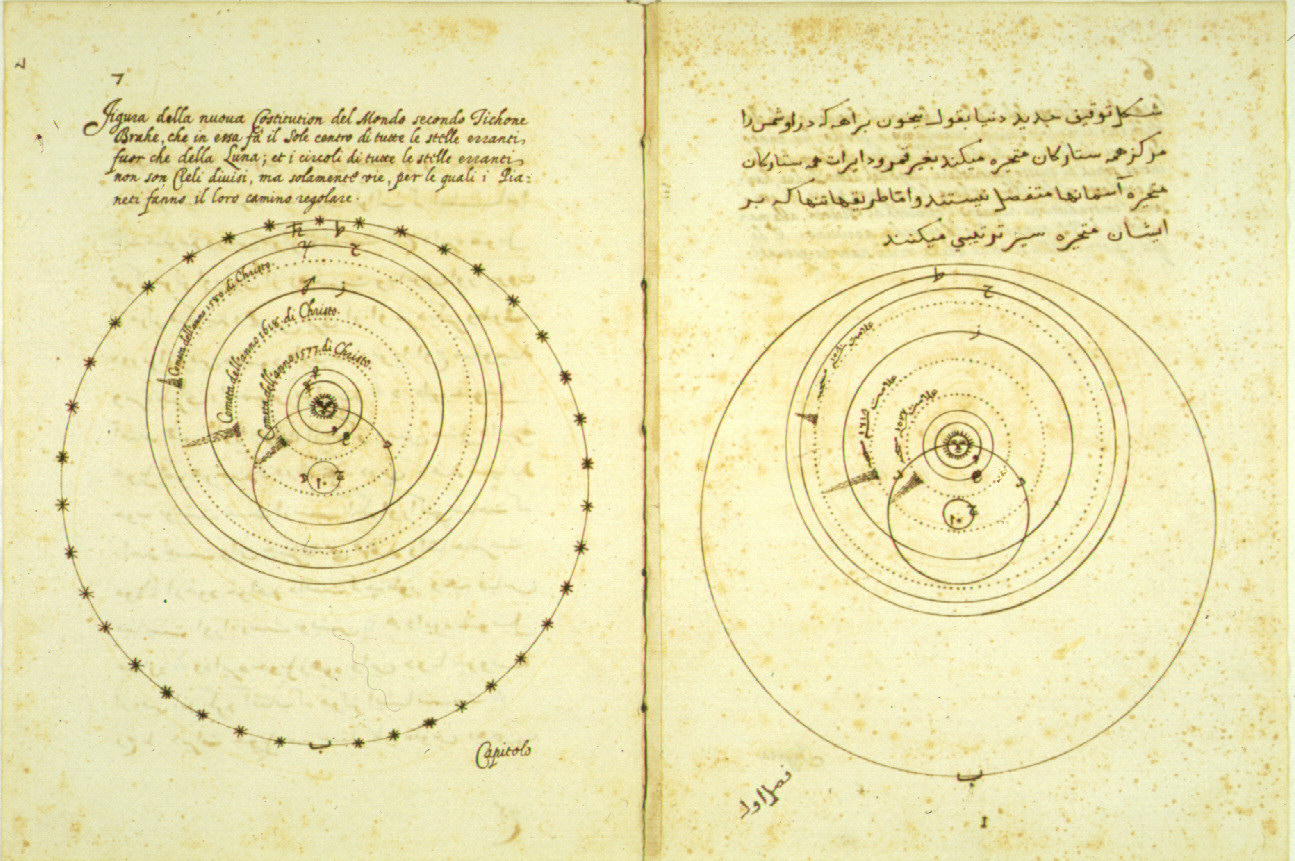 7
Figura della nuova Costitution del Mondo secondo Tichone
Brahe, che in essa fa il Sole centro di tutte le stelle erranti,
fuor che della Luna; et i circoli di tutte le stelle erranti
non son Cieli divisi, ma solamente vie, per le quali i Pia=
neti fanno il loro camino regolare.
♄ ط
♃ ح
♂ ز
Cometa dell'anno 1618 di Christo.
Cometa dell'anno 1577 di Christo.
ب
Capitolo
شكل توفيق جديد دنيا بقول تيخون براهه كه در او شمس را
مركز همه ستاركان متحيره ميكند بغير قمر و دايرات همه ستاركان
متحيره آسمانها منفصل نيستند و اما طريقها تنها كه بر
ايشان متحيره سير ترتيبي ميكنند
ط
ح
ز
ب
فصل اول
1